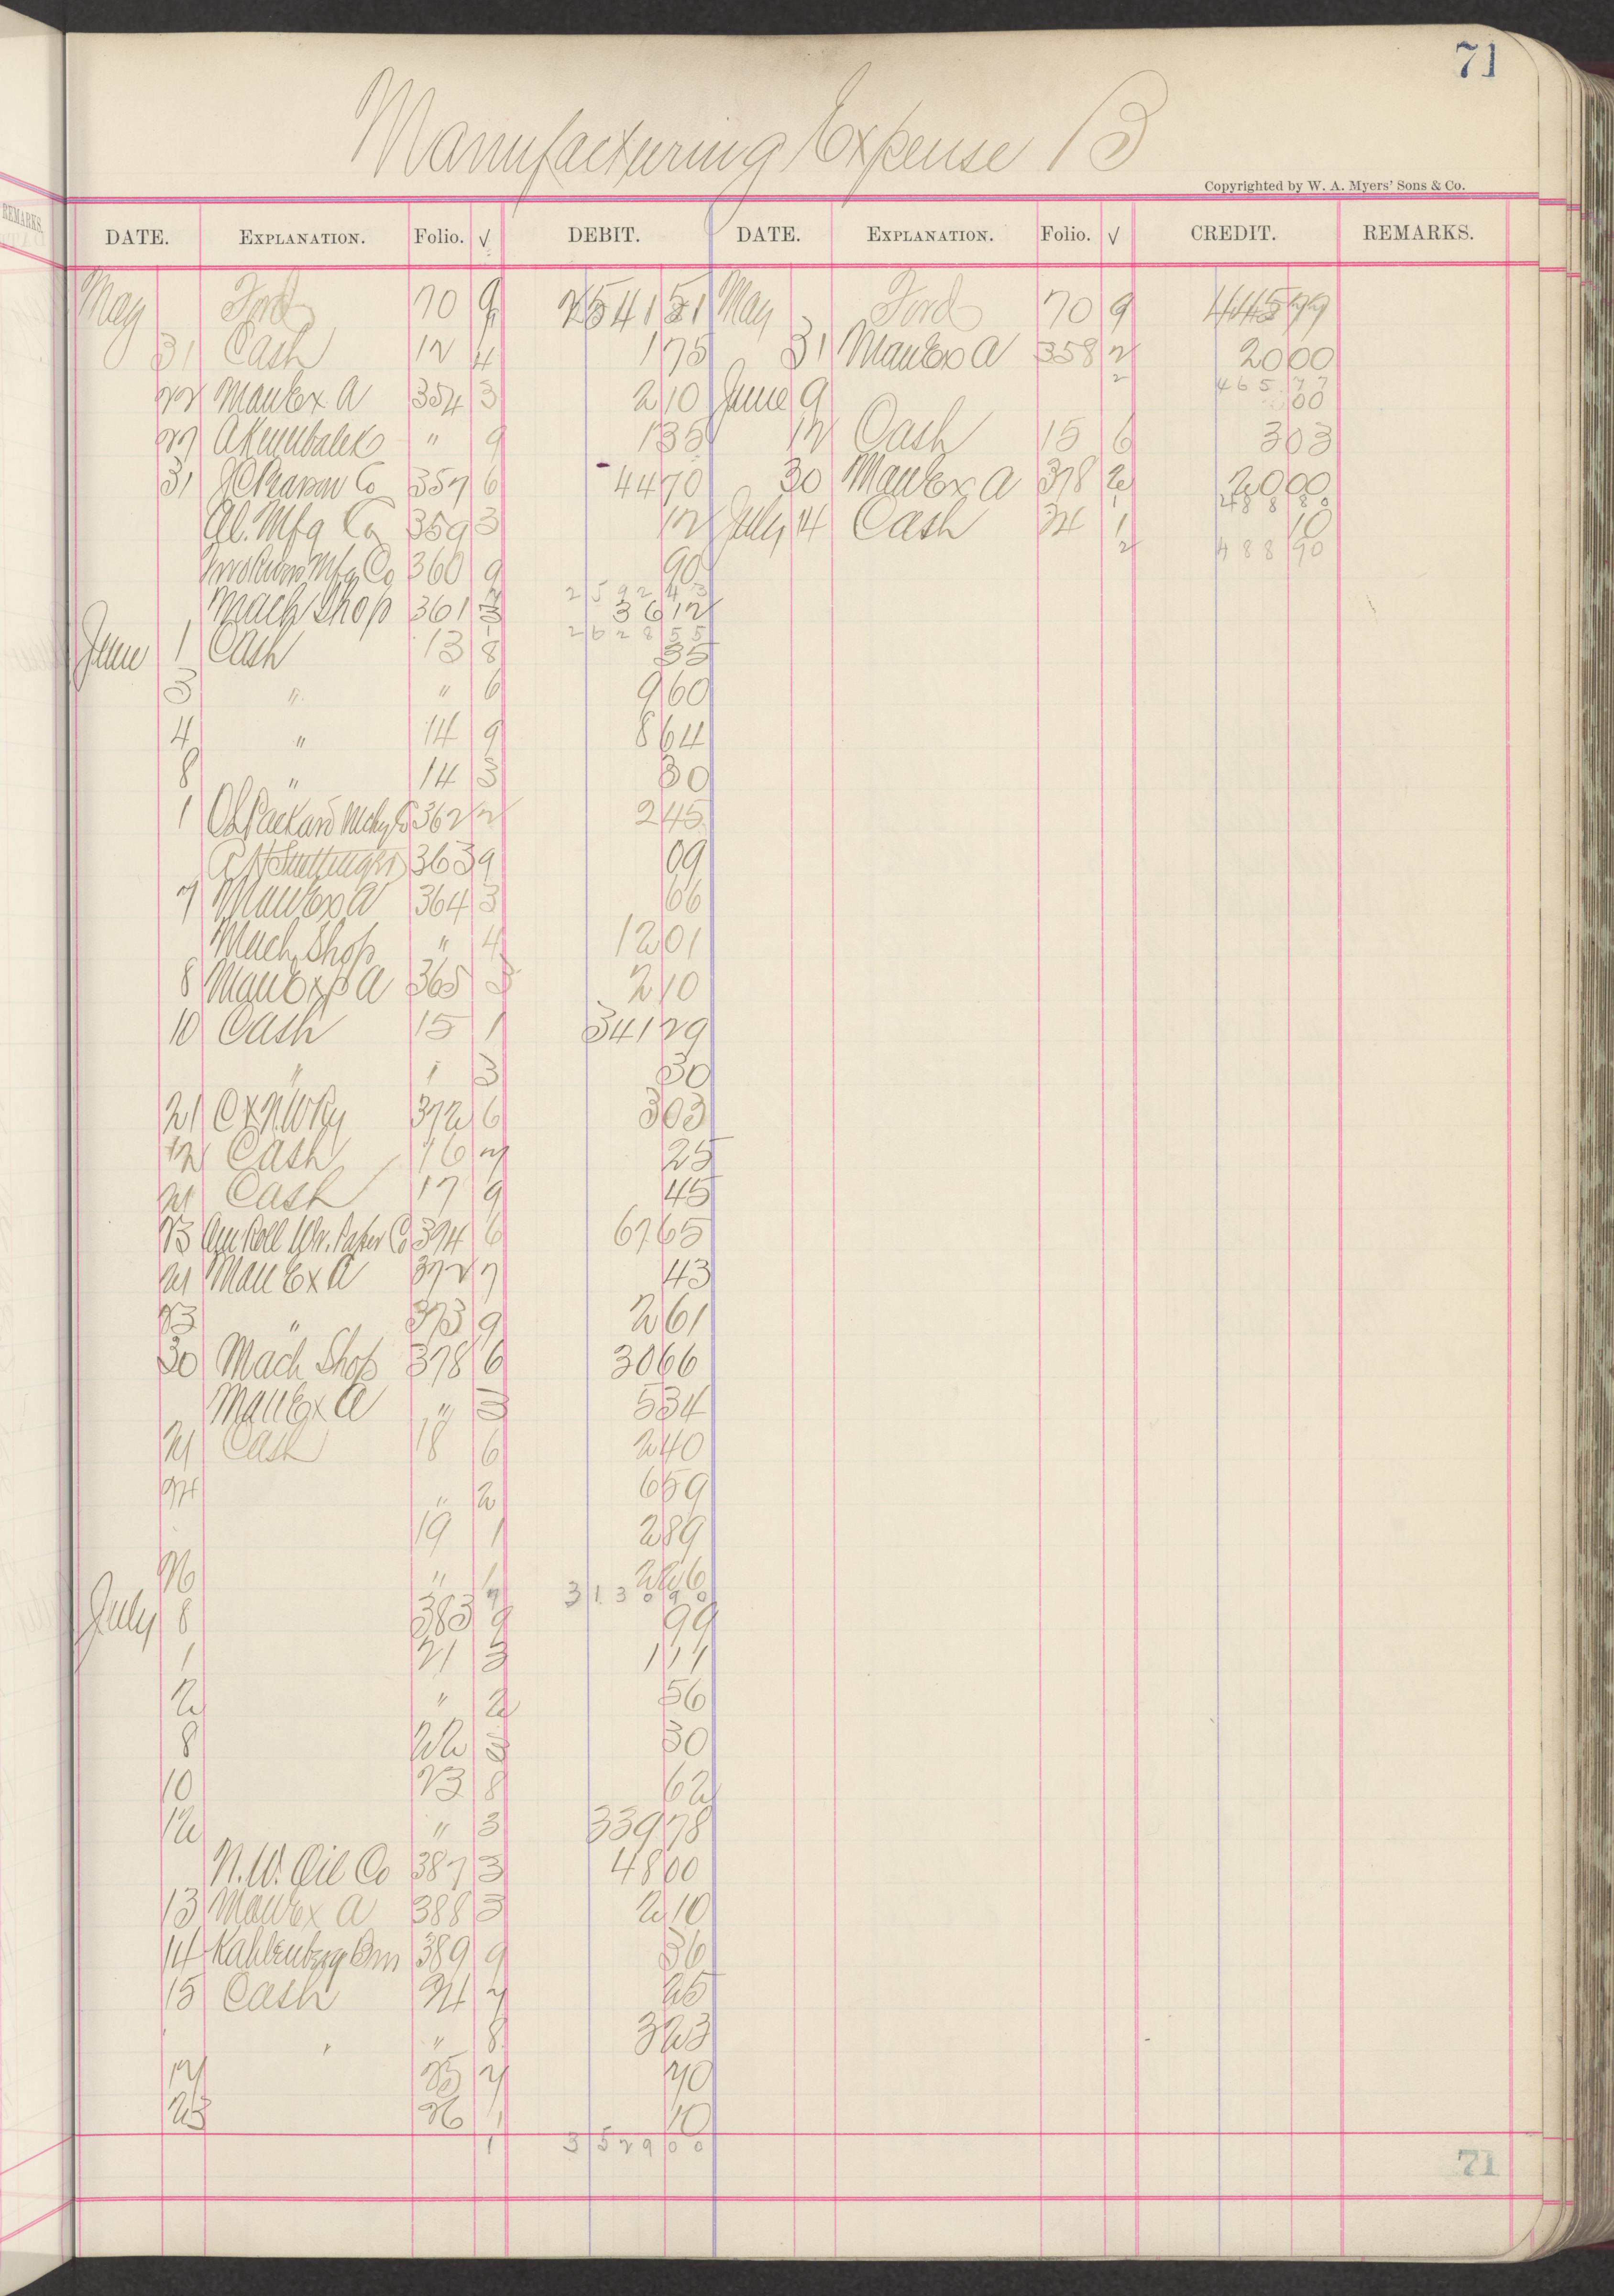 71
Manufacturing Expense B
Copyrighted by W. A. Myers' Sons & Co.
DATE. EXPLANATION. Folio. √ DEBIT. DATE. EXPLANATION. Folio. √ CREDIT. REMARKS.
May Ford 70 9 2541 51 May Ford 70 9 445 77
31 Cash 12 4 1 75 31 Man Ex A 358 2 20 00
22 Man Ex A 354 3 2 10 June 9
465 77
60
27 " 9 1 35 12 Cash 15 6 3 03
31 Co 357 6 44 70 30 Man Ex A 378 2 20 00
488 80
Gl. Mfg Co 359 3 12 July 14 Cash 24 1 10
Mfg Co 360 9 90
488 90
2592 43
Mach Shop 361 3 36 12
2628 55
June 1 Cash 13 8 35
3 " " 6 9 60
4 " 14 9 8 64
8 " 14 3 30
1 Packard Mchy Co 362 2 2 45
363 9 09
7 Man Ex A 364 3 66
Mach Shop " 4 12 01
8 Man Exp A 365 3 2 10
10 Cash 15 1 341 29
" " 3 30
21 C & N W Ry 372 6 3 03
12 Cash 16 7 25
21 Cash 17 9 45
23 Am Roll Wr. Paper Co 374 6 67 65
21 Man Ex A 372 7 43
23 " 373 9 2 61
30 Mach Shop 378 6 30 66
Man Ex A " 3 5 34
21 Cash 18 6 2 40
24 " 2 6 59
19 1 2 89
26 " 1 2 26
3130 90
July 8 383 9 99
1 21 3 1 11
2 " 2 56
8 22 3 30
10 23 8 62
12 " 3 339 78
N. W. Oil Co 387 3 48 00
13 Man Ex A 388 3 2 10
14 Kahlenberg Bros 389 9 36
15 Cash 24 7 25
" " 8 3 23
17 25 7 70
25 26 1 10
3529 00
71